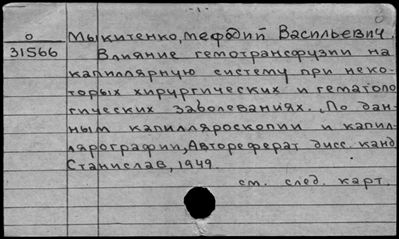 - 1 -
о Мыкитенко, Мефодий Васильевич.
31566 Влияние гемотрансфузии на
капиллярную систему при неко-
торых хирургических и гематоло
гических заболеваниях. По дан-
ным капилляроскопии и капил-
лярографии, Автореферат дисс. канд
Станислав, 1949.
см. след. карт.